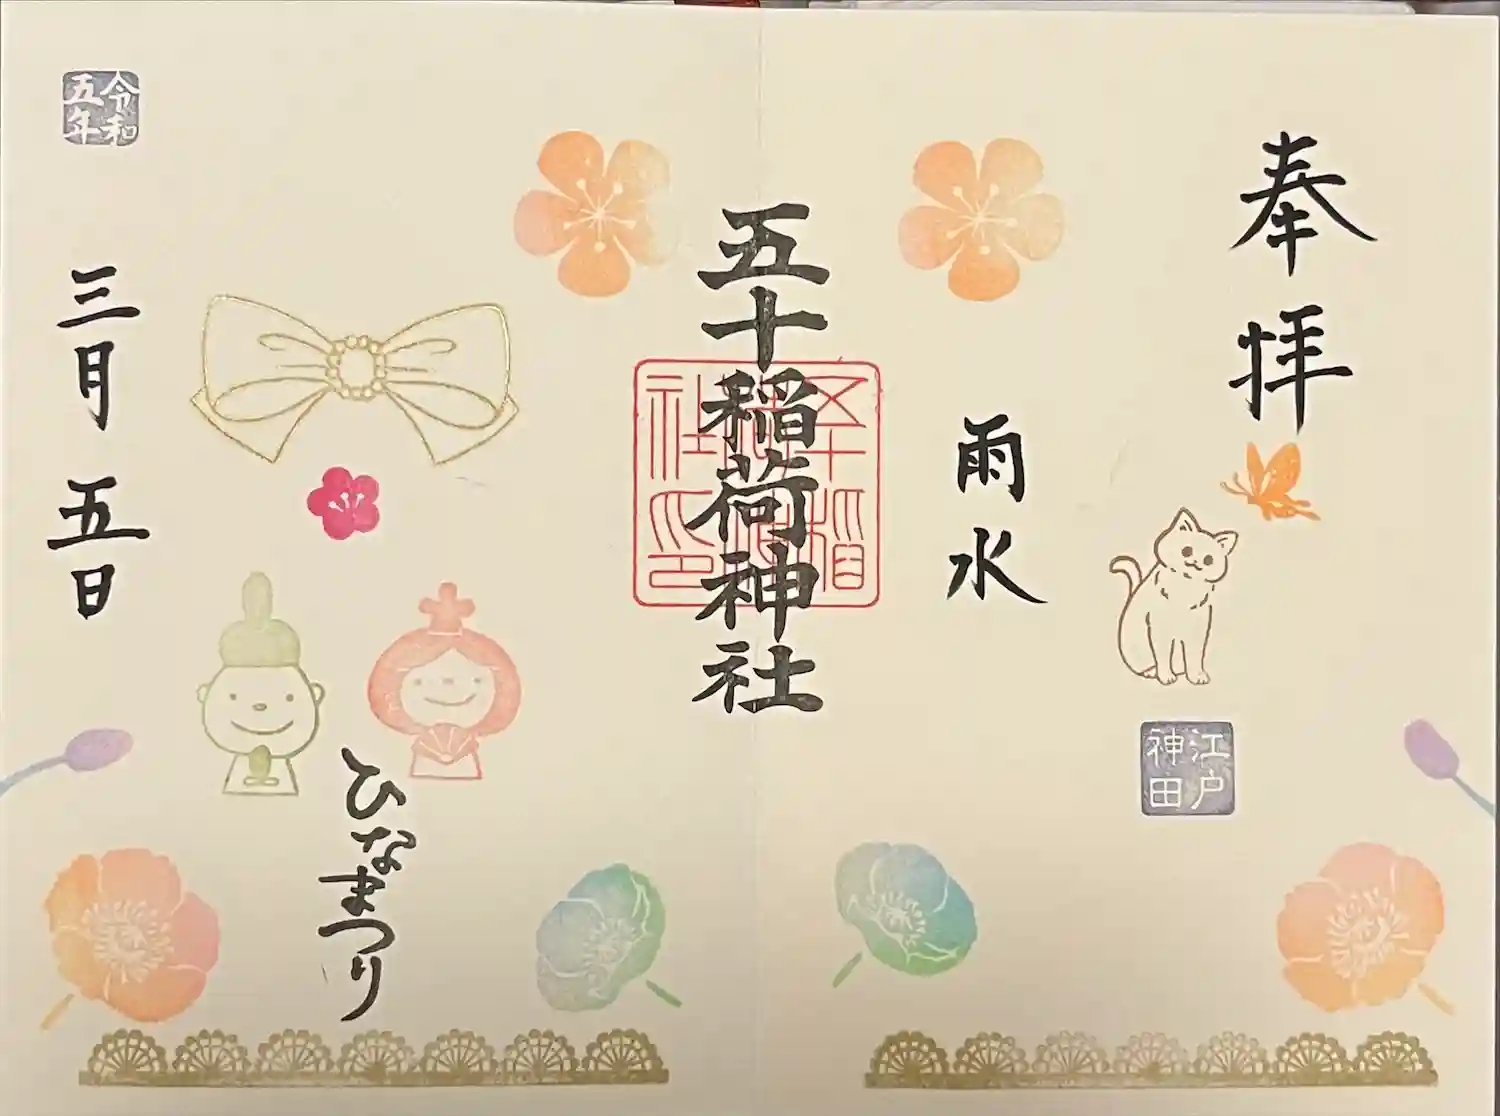 奉拝
江戸
神田
雨水
五十稲荷神社
五十稲
荷神
社印
ひなまつり
令和
五年
三月五日